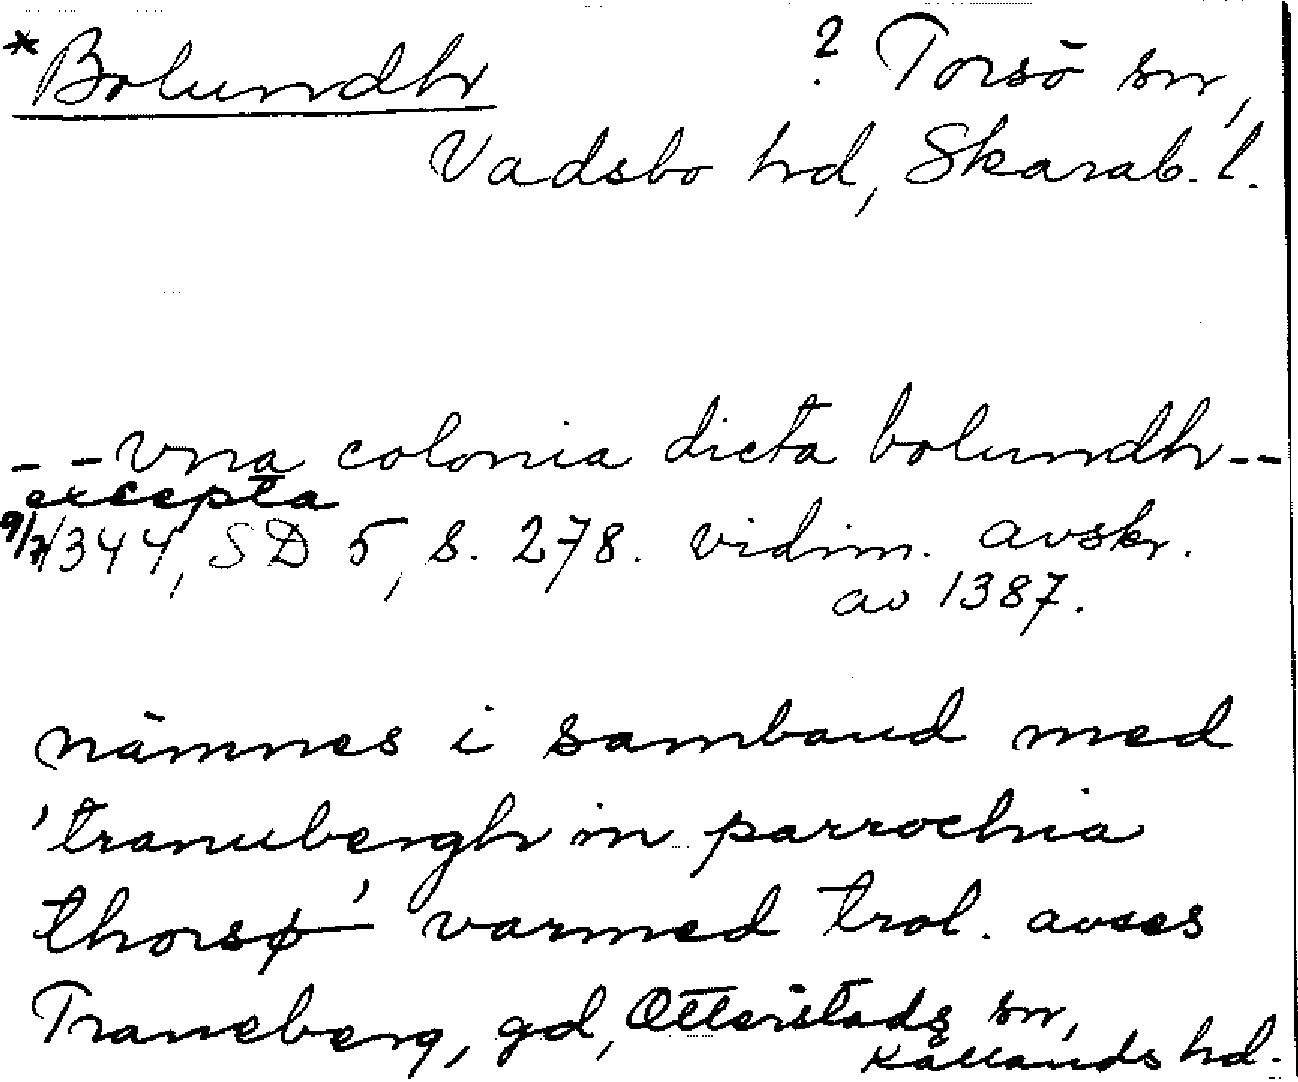 *Bolundh ? Torsö sn,
Vadsbo hd, Skarab. l.
- - vna colonia dicta bolundh --
excepta
9/7 1344, SD 5, s. 278. vidim. avskr.
av 1387.
nämnes i samband med
'tranubergh in parrochia
thorsø' varmed trol. avses
Traneberg, gd, Otterstads sn,
Kållands hd.